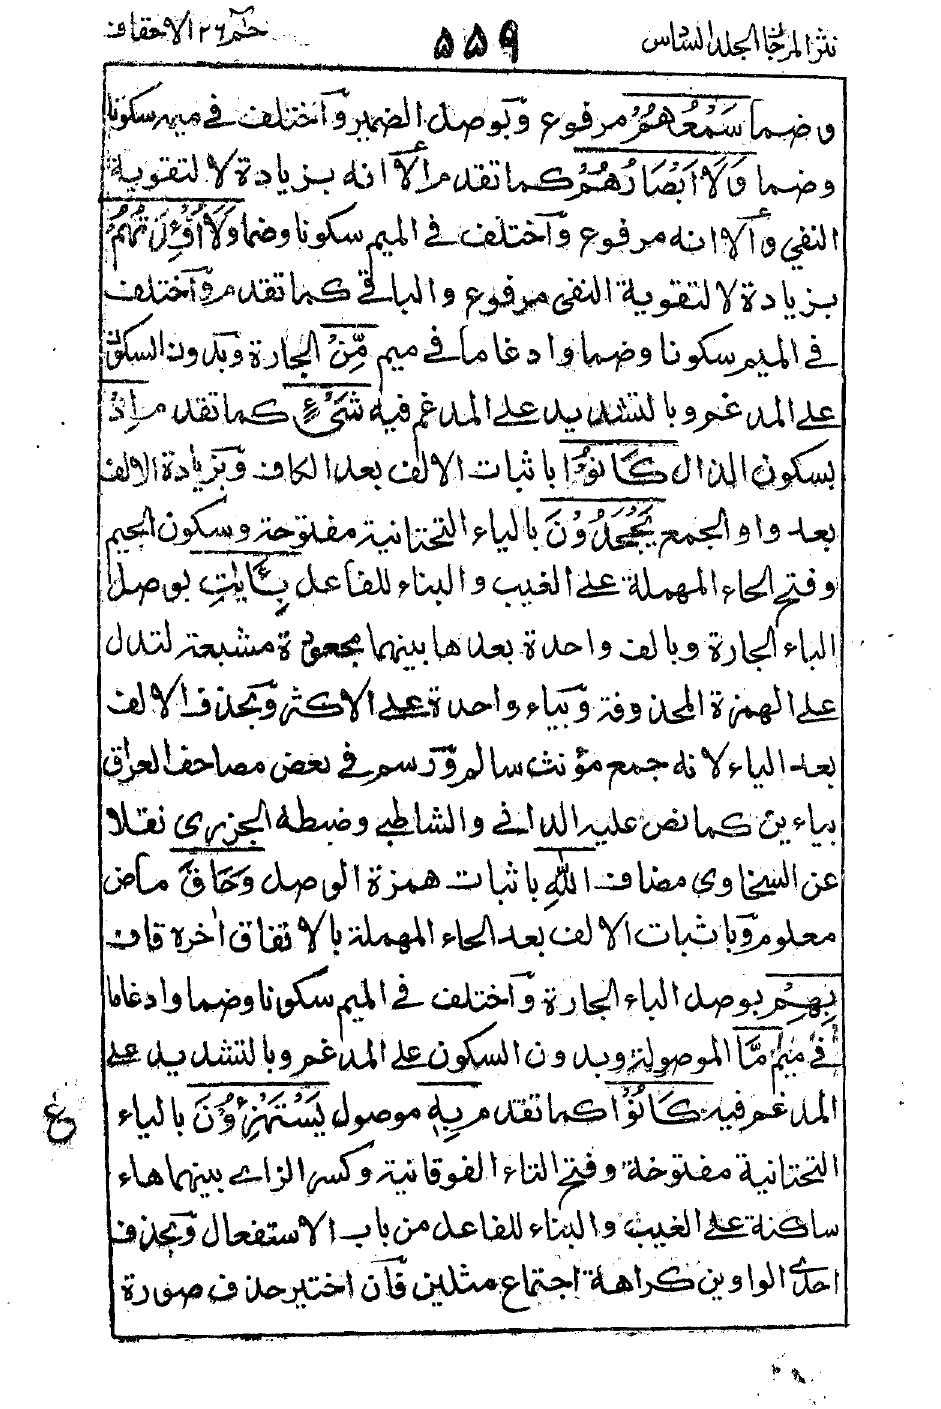 نثر المرجان الجلد السادس ۵۵۹ حٰمٓ ٢٦ الاحقاف
وضما سَمْعُهُمْ مرفوع وبوصل الضمير واختلف في ميمه سكونا
وضما وَلَآ اَبْصَارُهُمْ كما تقدم الا انه بزيادة لا لتقوية
النفي والا انه مرفوع واختلف في الميم سكونا وضما وَلَآ اَفْـِٕدَتُهُمْ
بزيادة لا لتقوية النفى مرفوع والباقي كما تقدم واختلف
في الميم سكونا وضما وادغاما في ميم مِّنْ الجارة وبدون السكون
على المدغم وبالتشديد على المدغم فيه شَىْءٍ كما تقدم اِذْ
بسكون الذال كَانُوْا باثبات الالف بعد الكاف وبزيادة الالف
بعد واو الجمع يَجْحَدُوْنَ بالياء التحتانية مفتوحة وسكون الجيم
وفتح الحاء المهملة على الغيب والبناء للفاعل بِـَٔايٰتِ بوصل
الباء الجارة وبالف واحدة بعدها بينهما مجعودة مشبعة لتدل
على الهمزة المحذوفة وبياء واحدة على الاكثر وبحذف الالف
بعد الياء لانه جمع مؤنث سالم ورسم في بعض مصاحف العراق
بياءين كما نص عليه الداني والشاطبي وضبطه الجزرى نقلا
عن السخاوي مضاف اللّٰهِ باثبات همزة الوصل وَحَاقَ ماض
معلوم وباثبات الالف بعد الحاء المهملة بالاتفاق اخره قاف
بِهِمْ بوصل الباء الجارة واختلف في الميم سكونا وضما وادغاما
في ميم مَّا الموصولة وبدون السكون على المدغم وبالتشديد على
المدغم فيه كَانُوْا كما تقدم بِهٖ موصول يَسْتَهْزِءُوْنَ بالياء
ع
التحتانية مفتوحة وفتح التاء الفوقانية وكسر الزاے بينهما هاء
ساكنة على الغيب والبناء للفاعل من باب الاستفعال وبحذف
احدى الواوين كراهة اجتماع مثلين فان اختير حذف صورة